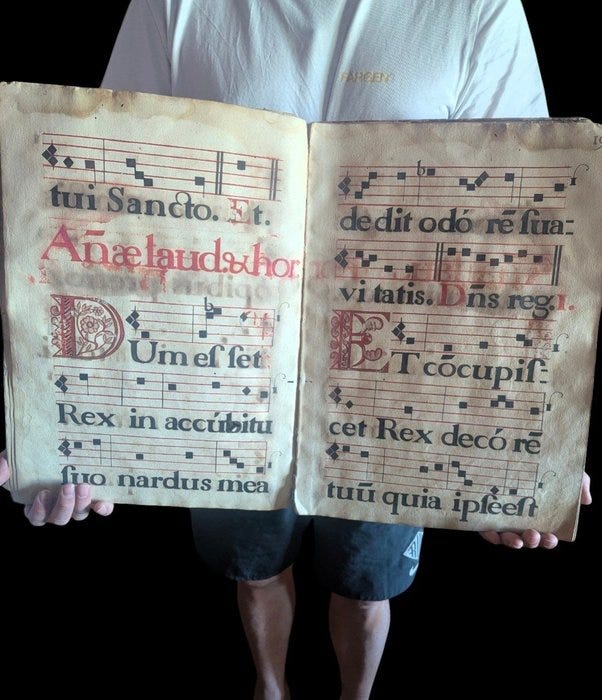 tui Sancto. Et.
Añæ laud. & hor
DUm eſ ſet
Rex in accúbitu
ſuo nardus mea
dedit odó rē ſua:
vi tatis. Dñs reg. 1.
ET cōcupiſ:
cet Rex decó rē
tuū quia ipſeeſt